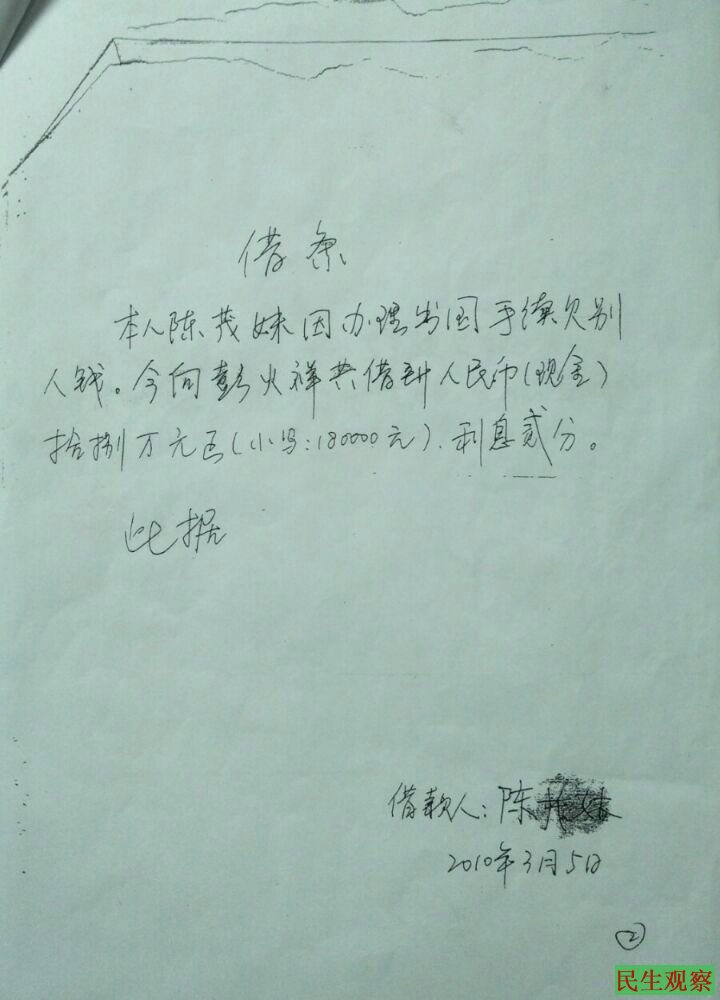 借条
本人陈茂妹因办理出国手续欠别
人钱。今向彭火祥共借到人民币(现金)
拾捌万元正(小写:180000元).利息贰分。
此据
借款人:陈
2010年3月5日
②
民生观察